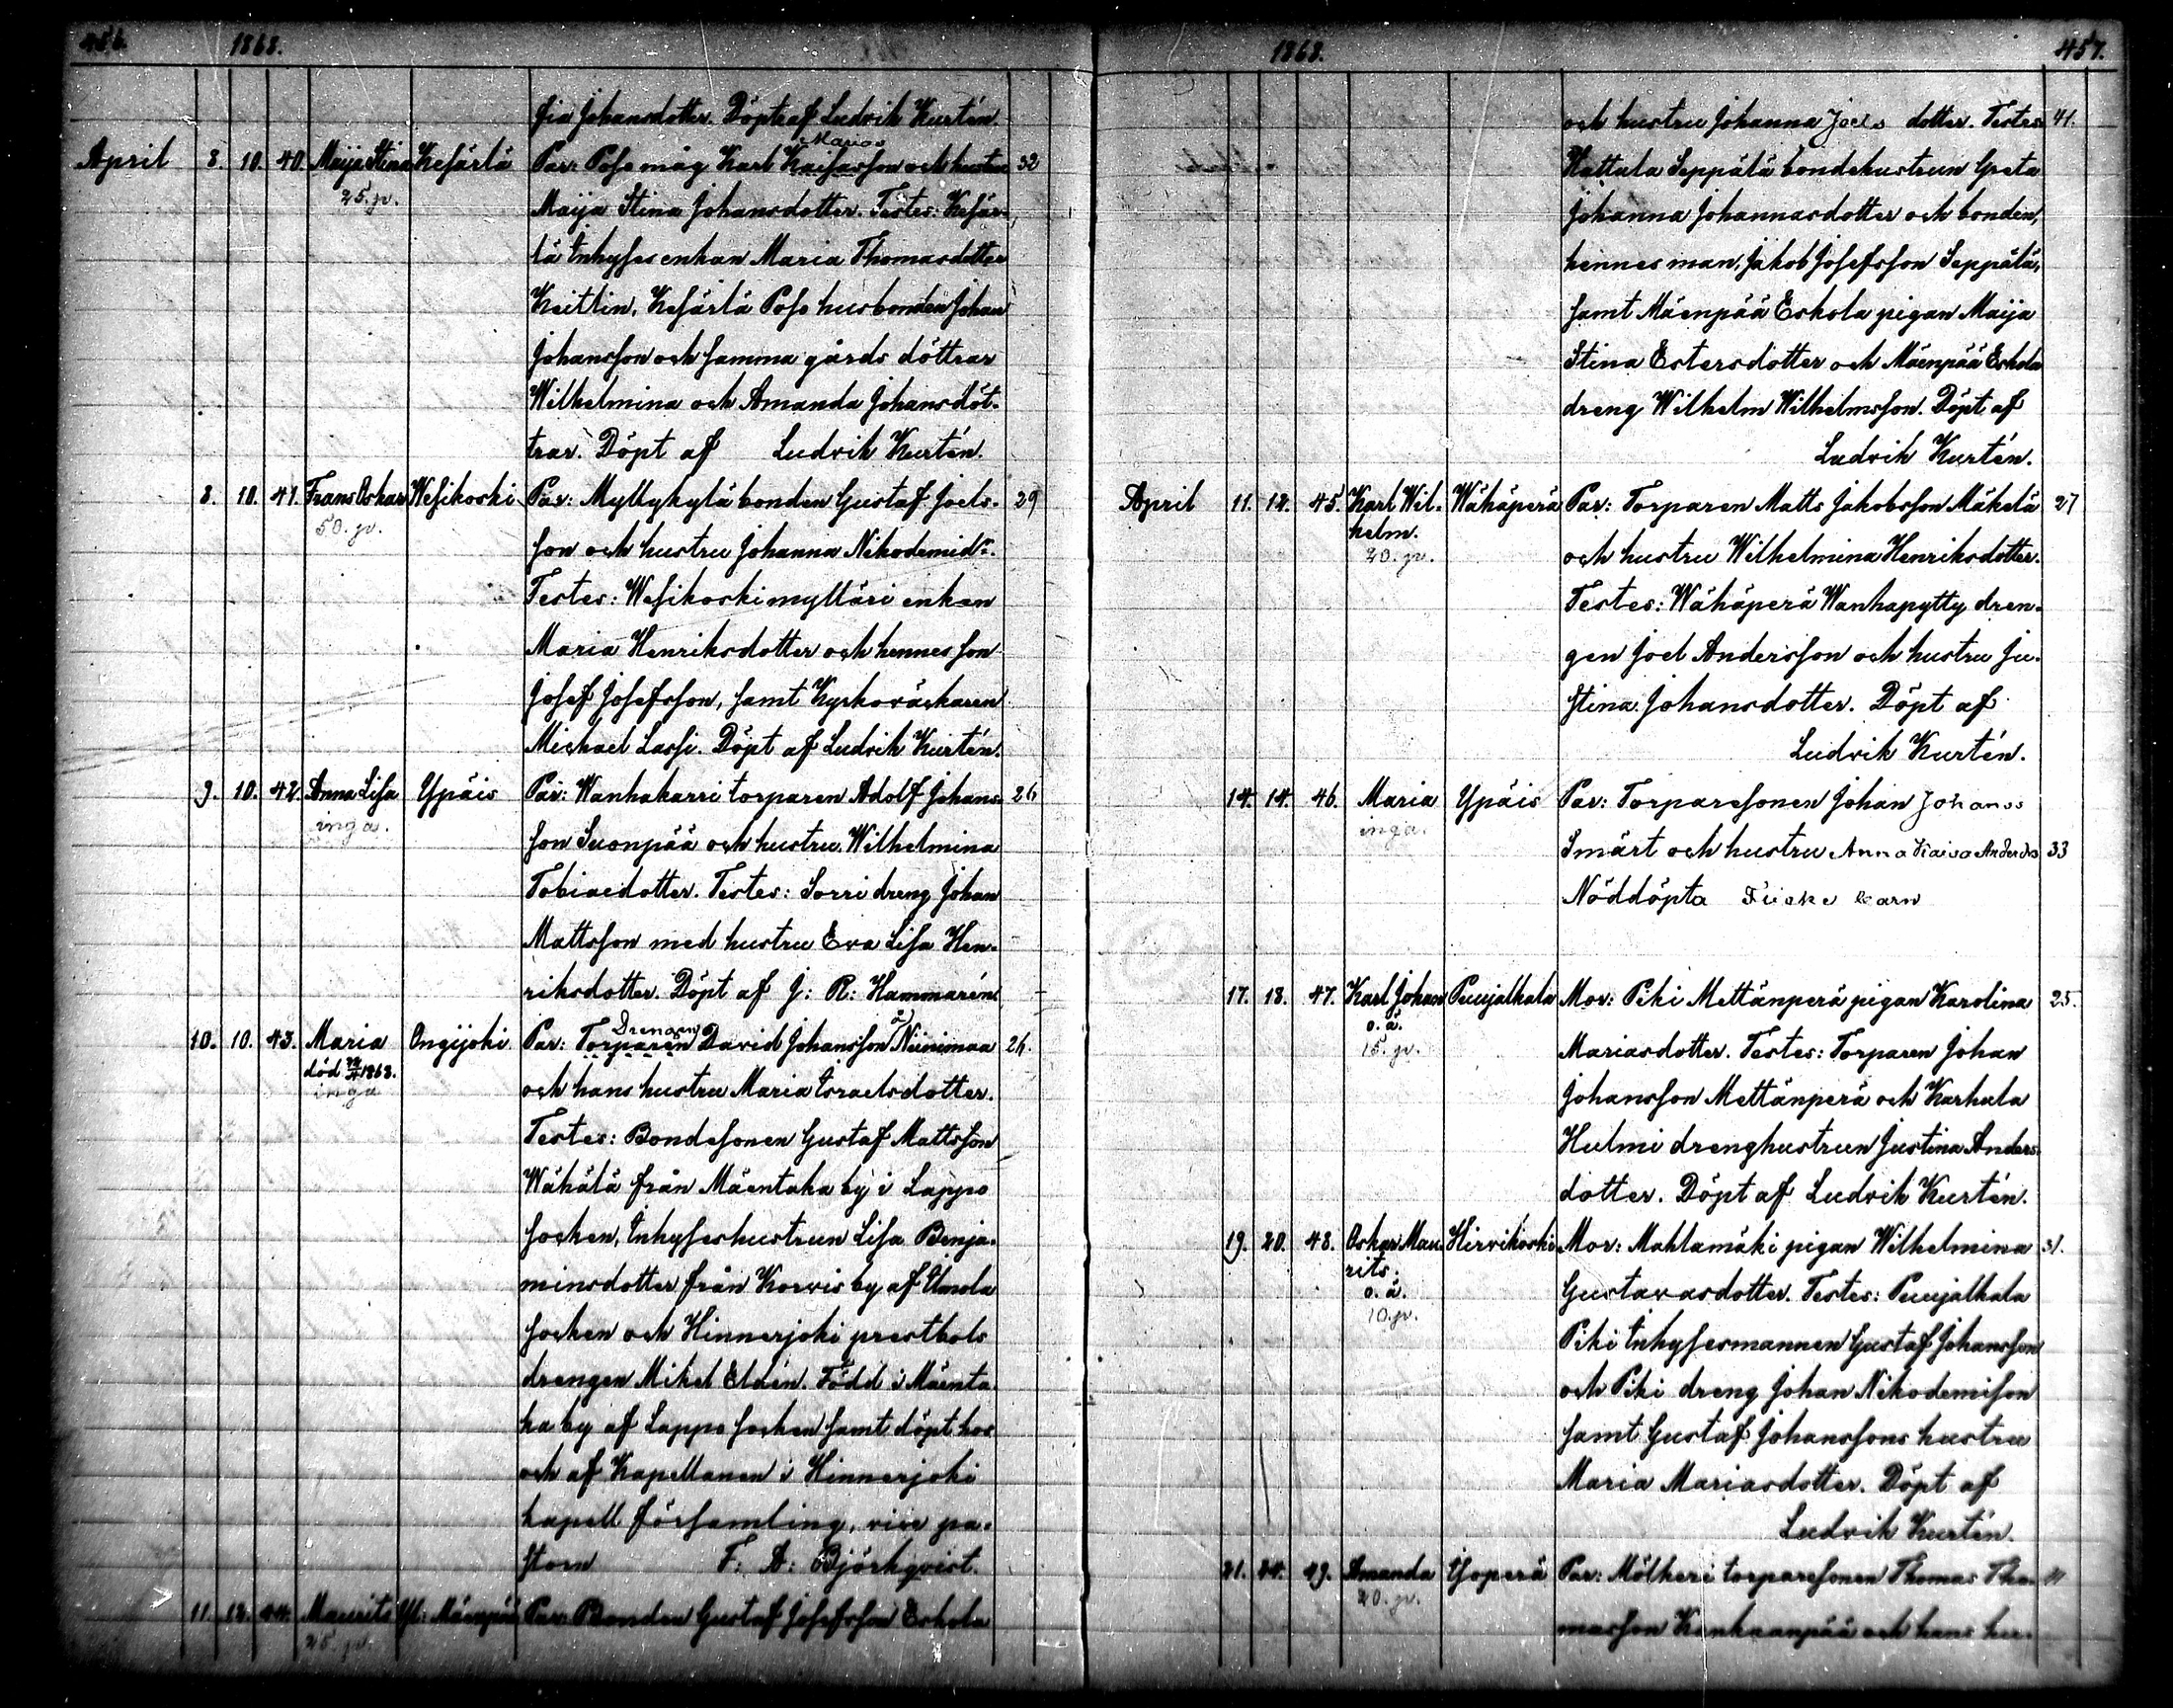 456. 1868.
sia Johansdotter. Döpt af Ludvik Kurtén.
April 8. 10. 40. Maija Stina Kesärlä Par: Poso måg Karl Kaisasson och hustru 32
Marias
25. p. Maija Stina Johansdotter. Testes: Kesär-
lä Inhyses enkan Maria Thomasdotter
Keitlin, Kesärlä Poso husbonden Johan
Johansson och samma gårds döttrar
Wilhelmina och Amanda Johansdöt-
trar. Döpt af Ludvik Kurtén.
8. 10. 41. Frans Oskar Wesikoski Par: Myllykylä bonden Gustaf Joels- 29
50. p. son och hustru Johanna Nikodemidr.
Testes: Wesikoski mylläri enkan
Maria Henriksdotter och hennes son
Josef Josefsson, samt Kyrkoväskaren
Michael Lassi. Döpt af Ludvik Kurtén.
9. 10. 42. Anna Lisa Ypäis Par: Wanhakarri torparen Adolf Johans- 26
inga. son Suonpää och hustru Wilhelmina
Tobiaedotter. Testes: Sorri dreng Johan
Mattsson med hustru Eva Lisa Hen-
riksdotter. Döpt af J: R: Hammarén.
Drengen å
10. 10. 43. Maria Ongijoki Par: Torparen David Johansson Niinimaa 26.
död 1868. och hans hustru Maria Israelsdotter.
inga
Testes: Bondesonen Gustaf Mattsson
Wähälä från Mäentaka by i Lappo
socken, Inhyseshustrun Lisa Benja-
minsdotter från Korvis by af
socken och Hinnerjoki prestbols
drengen Mikel Eldén. Född i Mäenta-
ka by af Lappo socken samt döpt hos
och af Kapellanen i Hinnerjoki
kapell församling, vice pa-
storn F: A: Björkqvist.
11. 12. 44. Maurits Yl: Mäenpää Par: Bonden Gustaf Josefsson Eskola
25. p.
1868. 457.
och hustru Johanna Joels dotter. Testes 41.
Hattula Seppälä bondehustrun Greta
Johanna Johannasdotter och bonden,
hennes man, Jakob Josefsson Seppälä,
samt Mäenpää Eskola pigan Maija
Stina Estersdotter och Mäenpää Eskola
dreng Wilhelm Wilhelmsson. Döpt af
Ludvik Kurtén.
April 11. 12. 45. Karl Wil- Wähäperä Par: Torparen Matts Jakobsson Mäkelä 27
helm. och hustru Wilhelmina Henriksdotter.
20. p.
Testes: Wähäperä Wanhapytty dren-
gen Joel Andersson och hustru Ju-
stina Johansdotter. Döpt af
Ludvik Kurtén.
14. 14. 46. Maria Ypäis Par: Torparesonen Johan Johanss
inga. Smärt och hustru Anna Kaisa Andersdr 33
Nöddöpta barn
17. 18. 47. Karl Johan Puujalkala Mor: Piki Mettänperä pigan Karolina 25.
o. ä. Mariasdotter. Testes: Torparen Johan
15. p.
Johansson Mettänperä och Karhula
Hulmi drenghustrun Justina Anders-
dotter. Döpt af Ludvik Kurtén.
19. 20. 48. Oskar Mau- Hirvikoski Mor: Mahlamäki pigan Wilhelmina 31.
rits. Gustavasdotter. Testes: Puujalkala
o. ä.
10. p. Piki Inhysesmannen Gustaf Johansson
och Piki dreng Johan Nikodemison
samt Gustaf Johanssons hustru
Maria Mariasdotter. Döpt af
Ludvik Kurtén.
21. 24. 49. Amanda Isoperä Par: Mölkeri torparesonen Thomas Tho-
20. p. masson Kankaanpää och hans hu-